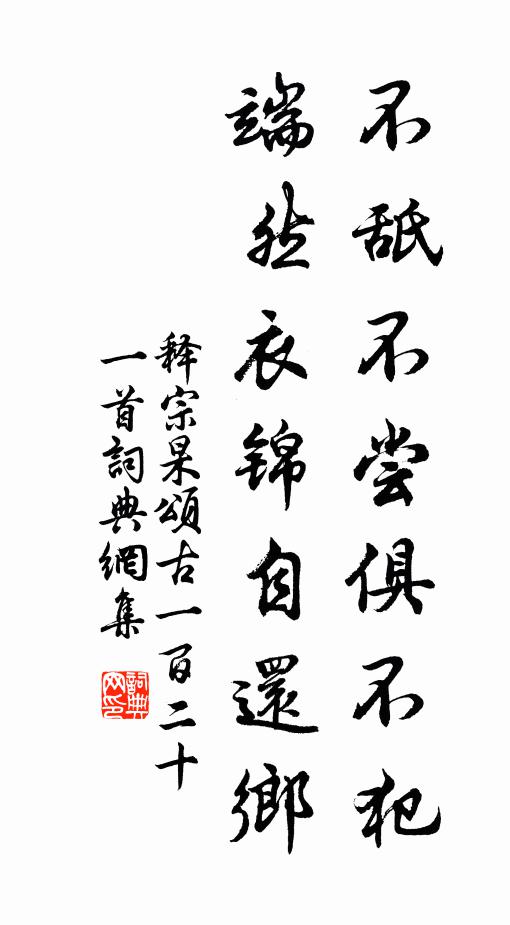 不舐不尝俱不犯
端然衣锦自還鄉
释宗杲頌古一百二十
一首詞典網集
詞典网印